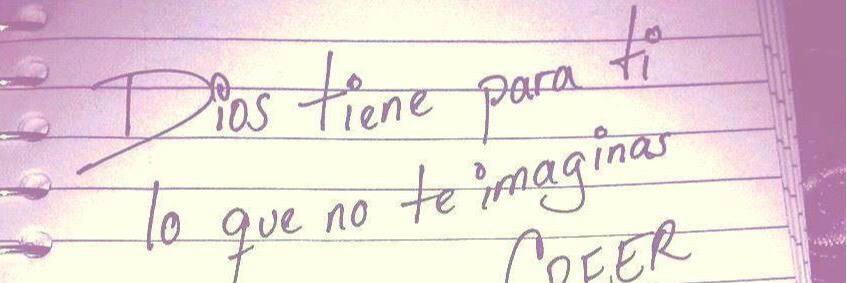 Dios tiene para ti
lo que no te imaginas
CREER